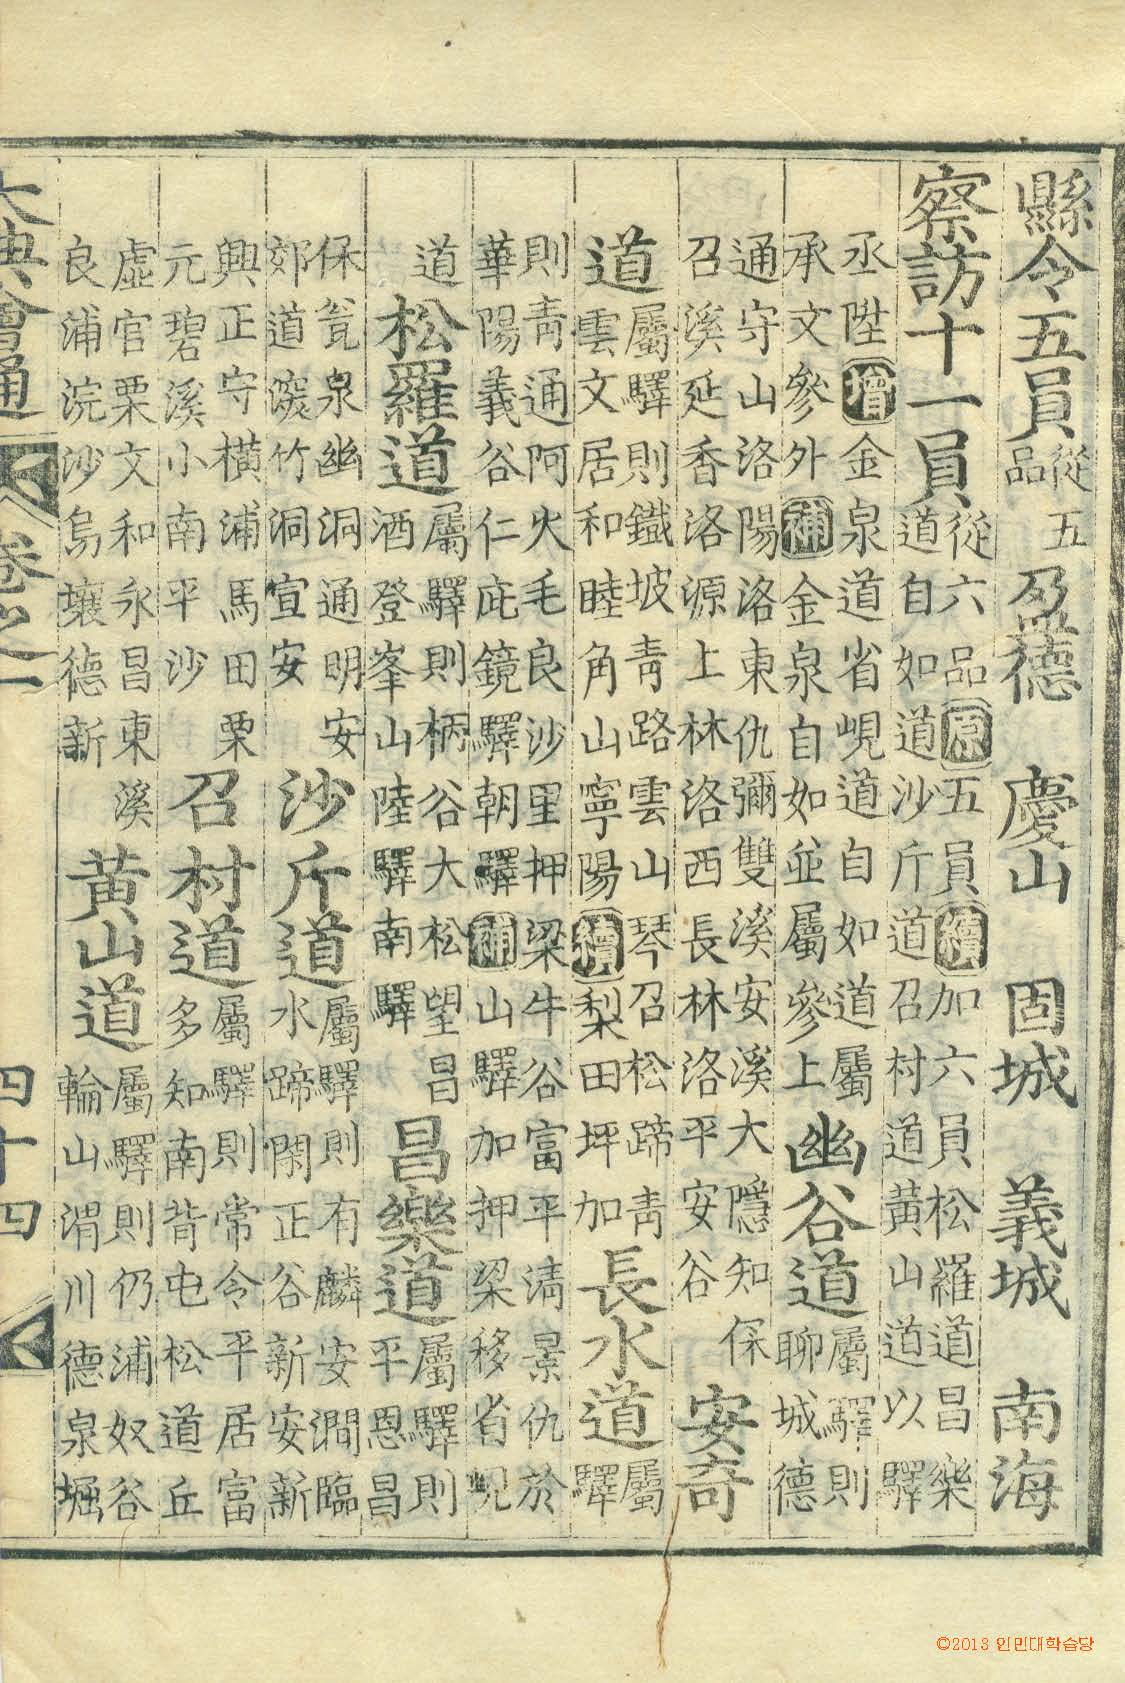 縣令五員從五品 盈德 慶山 固城 義城 南海
察訪十一員從六品原五員續加六員松羅道昌樂道自如道沙斤道召村道黃山道以驛
丞陞增金泉道省峴道自如道屬承文參外補金泉自如並屬參上 幽谷道屬驛則聊城德
通守山洛陽洛東仇彌雙溪安溪大隱知保召溪延香洛源上林洛西長林洛平安谷 安奇
道屬驛則鐵坡靑路雲山琴召松蹄靑雲文居和睦角山寧陽續梨田坪加 長水道屬驛
則靑通阿火毛良沙里押梁牛谷富平淸景仇於華陽義谷仁庇鏡驛朝驛補山驛加押梁移省峴
道 松羅道屬驛則柄谷大松望昌酒登峯山陸驛南驛 昌樂道屬驛則平恩昌
保瓮泉幽洞通明安郊道深竹洞宣安 沙斤道屬驛則有麟安澗臨水蹄閑正谷新安新
興正守橫浦馬田栗元碧溪小南平沙 召村道屬驛則常令平居富多知南背屯松道丘
虛官栗文和永昌東溪良浦浣沙烏壤德新 黃山道屬驛則仍浦奴谷輪山渭川德泉堀
大典會通 卷之一 四十四
©2013 인민대학습당